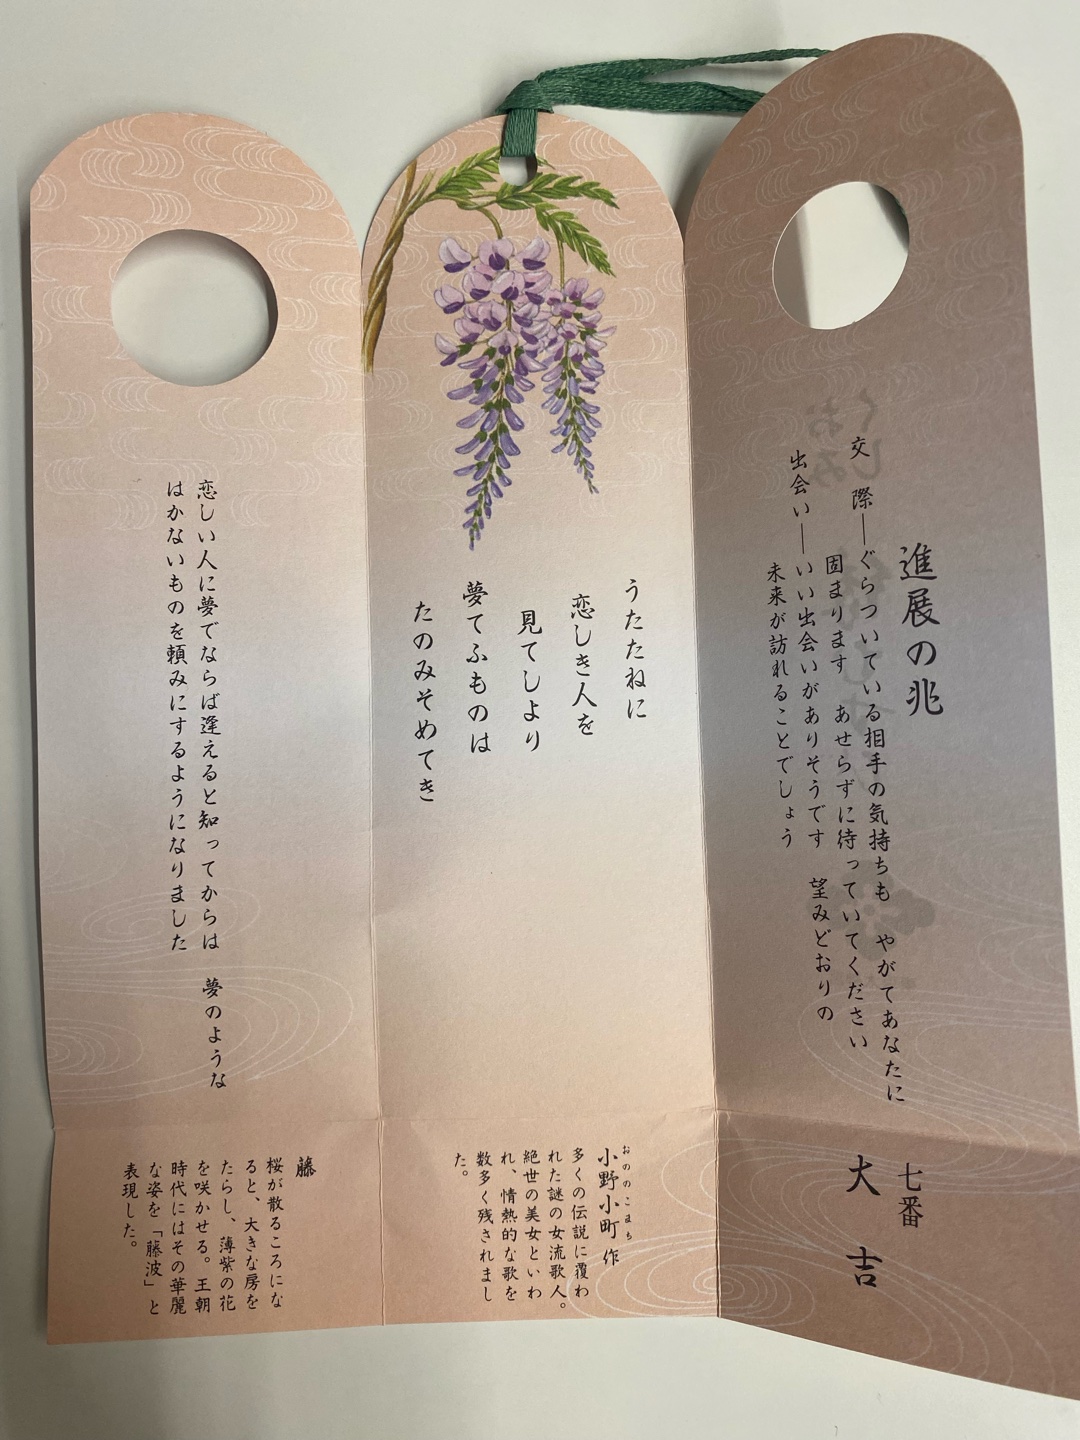 進展の兆
交 際―ぐらついている相手の気持ちも やがてあなたに
固まります あせらずに待っていてください
出会い―いい出会いがありそうです 望みどおりの
未来が訪れることでしょう
七番
大 吉
うたたねに
恋しき人を
見てしより
夢てふものは
たのみそめてき
おののこまち
小野小町 作
多くの伝説に覆わ
れた謎の女流歌人。
絶世の美女といわ
れ、情熱的な歌を
数多く残されまし
た。
恋しい人に夢でならば逢えると知ってからは 夢のような
はかないものを頼みにするようになりました
藤
桜が散るころにな
ると、大きな房を
たらし、薄紫の花
を咲かせる。王朝
時代にはその華麗
な姿を「藤波」と
表現した。